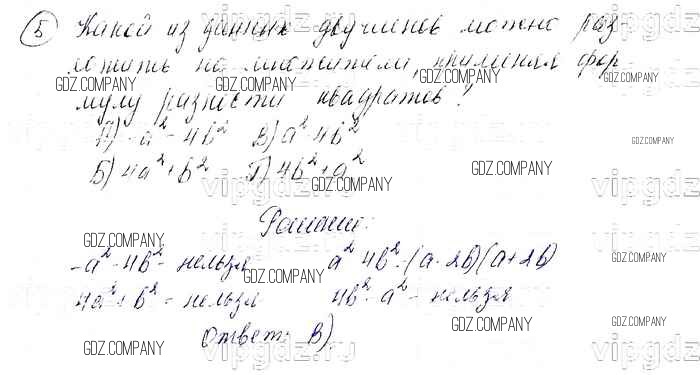 5 Какой из данных двучленов можно раз-
ложить на множители, применяя фор
мулу разности квадратов?
А) -a² - 4b² В) a² 4b²
Б) 4a² + b² Г) 4b² + a²
Решение:
-a² - 4b² - нельзя a² 4b² - (a - 2b)(a + 2b)
4a² + b² - нельзя 4b² - a² - нельзя
Ответ: В).
GDZ.COMPANY
GDZ.COMPANY
GDZ.COMPANY
GDZ.COMPANY
GDZ.COMPANY
GDZ.COMPANY
GDZ.COMPANY
GDZ.COMPANY
GDZ.COMPANY
GDZ.COMPANY
GDZ.COMPANY
GDZ.COMPANY
GDZ.COMPANY
vipgdz.ru
vipgdz.ru
vipgdz.ru